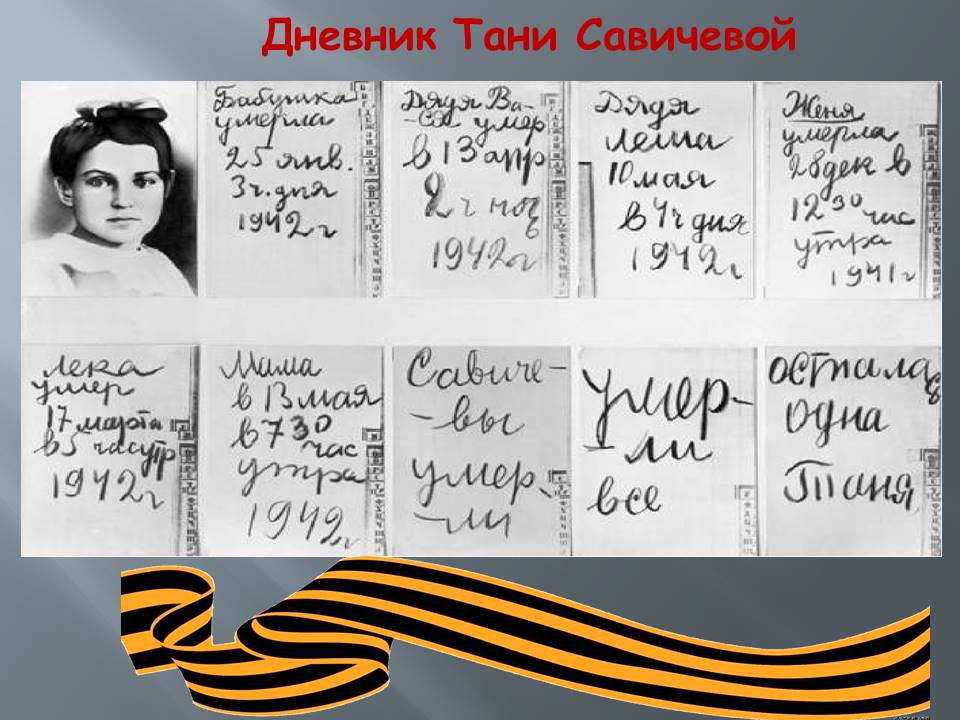 Дневник Тани Савичевой
Бабушка
умерла
25 янв.
3 ч. дня
1942 г
Дядя Ва-
-ся умер
в 13 апр
2 ч ноч
ь
1942 г
Дядя
Леша
10 мая
в 4 ч дня
1942 г
Женя
умерла
28 дек в
12 30 час
утра
1941 г
Лека
умер
17 марта
в 5 час утр
1942 г
Мама
в 13 мая
в 7 30
час
утра
1942 г
Савиче-
-вы
умер-
-ли
умер-
-ли
все
осталас
ь
одна
Таня